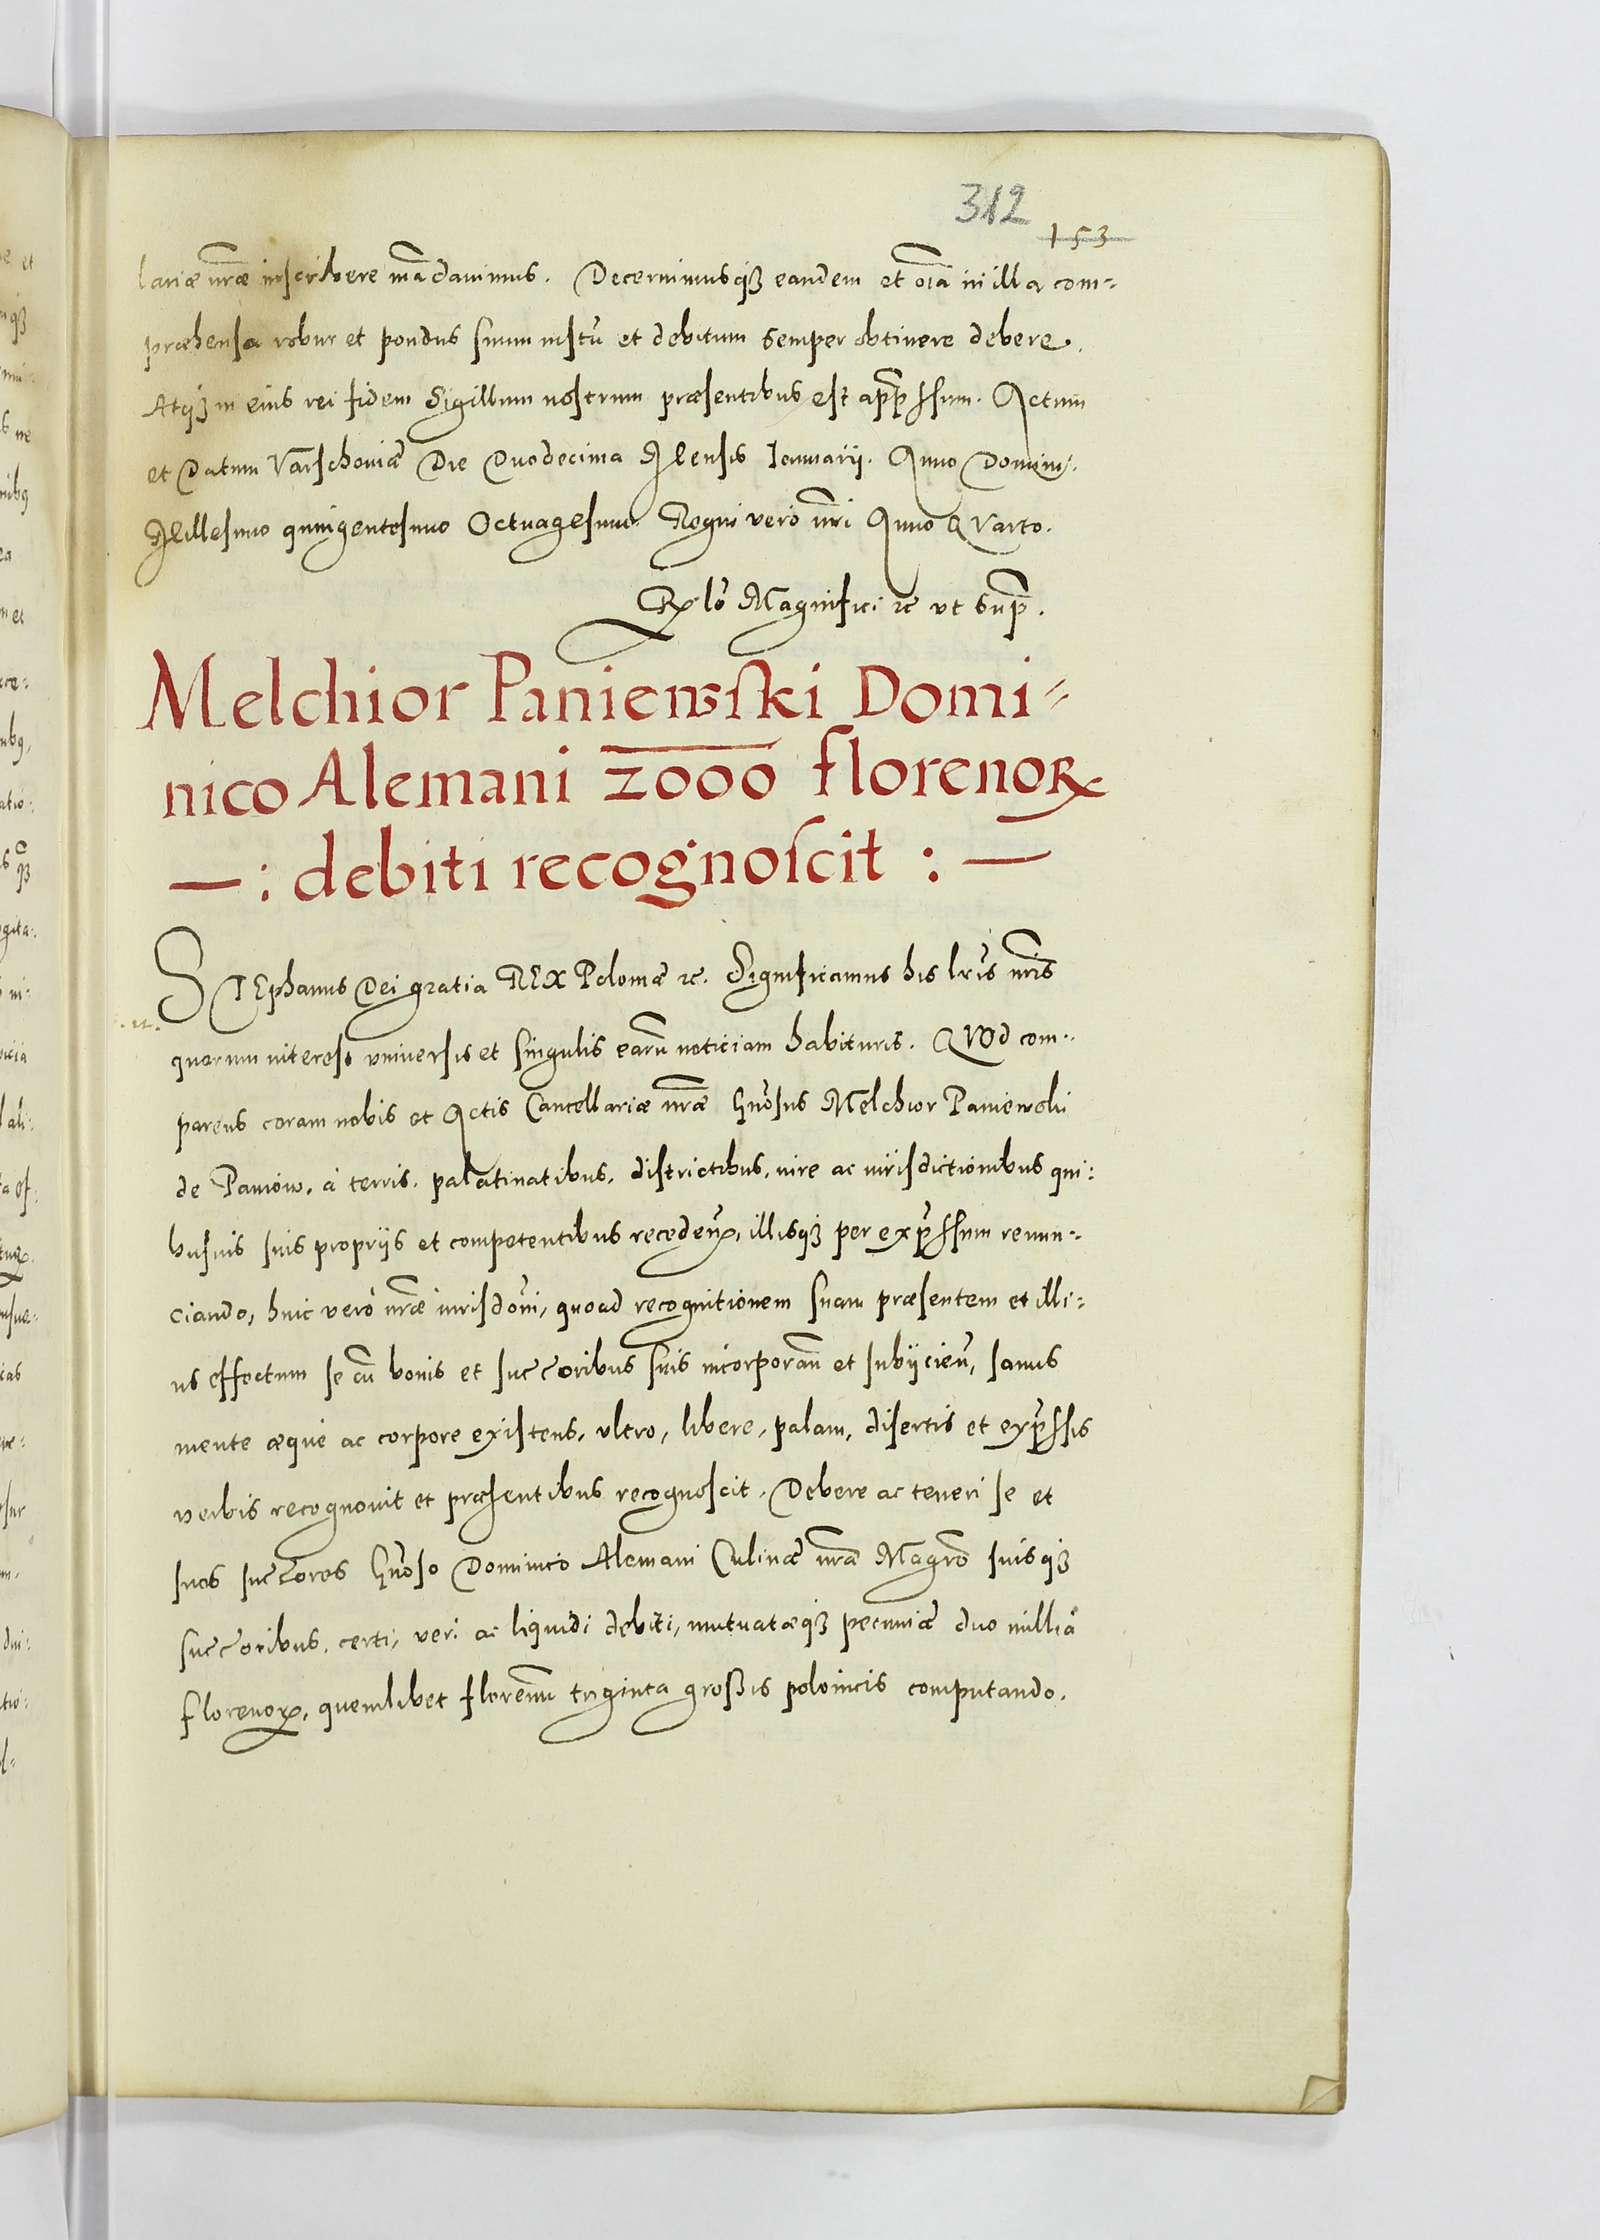 312
153
lariæ nr̃æ inscribere mãdauimus. Decernimusq3 eandem et oĩa in illa com=
præhensa robur et pondus suum iustũ et debitum semper obtinere debere.
Atq3 in eius rei fidem Sigillum nostrum præsentibus est app̃ssum. Actum
et Datum Varschouiæ Die Duodecima Mensis Ianuarij. Anno Domini.
Millesimo quingentesimo Octuagesimo. Regni vero nr̃i Anno QVarto.
Relõ Magnifici &c vt sup̃.
Melchior Paniewski Domi=
nico Alemani 2000 florenoꝝ
—: debiti recognoscit :—
STEphanus Dei gratia REX Poloniæ &c. Significamus his lr̃is nr̃is
quorum interest vniuersis et singulis earũ noticiam habituris. QVOd com=
parens coram nobis et Actis Cancellariæ nr̃æ Gñosus Melchior Paniewski
de Paniow, à terris, palatinatibus, districtibus, iure ac iurisdictionibus qui=
busuis suis proprijs et competentibus recedeñ, illisq3 per exp̃ssum renun=
ciando, huic verò nr̃æ iurisdõni, quoad recognitionem suam præsentem et illi=
us effectum se cũ bonis et succ̃oribus suis incorporañ et subijcieñ, sanus
mente æque ac corpore existens, vltro, libere, palam, disertis et exp̃ssis
verbis recognouit et præsentibus recognoscit. Debere ac teneri se et
suos succ̃ores Gñoso Dominico Alemani Culinæ nr̃æ Magr̃o suisq3
succ̃oribus, certi, veri ac liquidi debiti, mutuatæq3 pecuniæ duo millia
florenoꝝ, quemlibet florenũ triginta grossis polonicis computando.